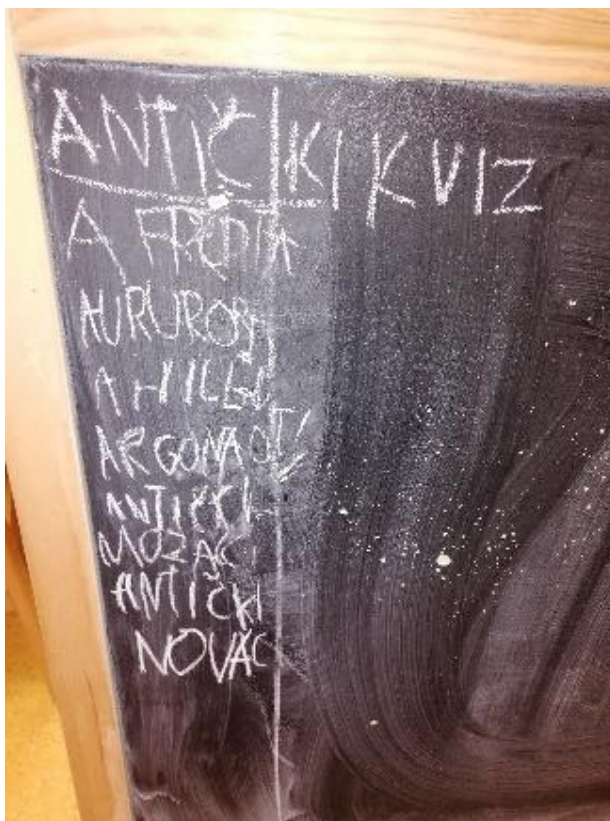 ANTIČKI KVIZ
AFRODITA
AHILEJ
ARGONAUTI
ANTIČKI
MOZAC
ANTIČKI
NOVAC